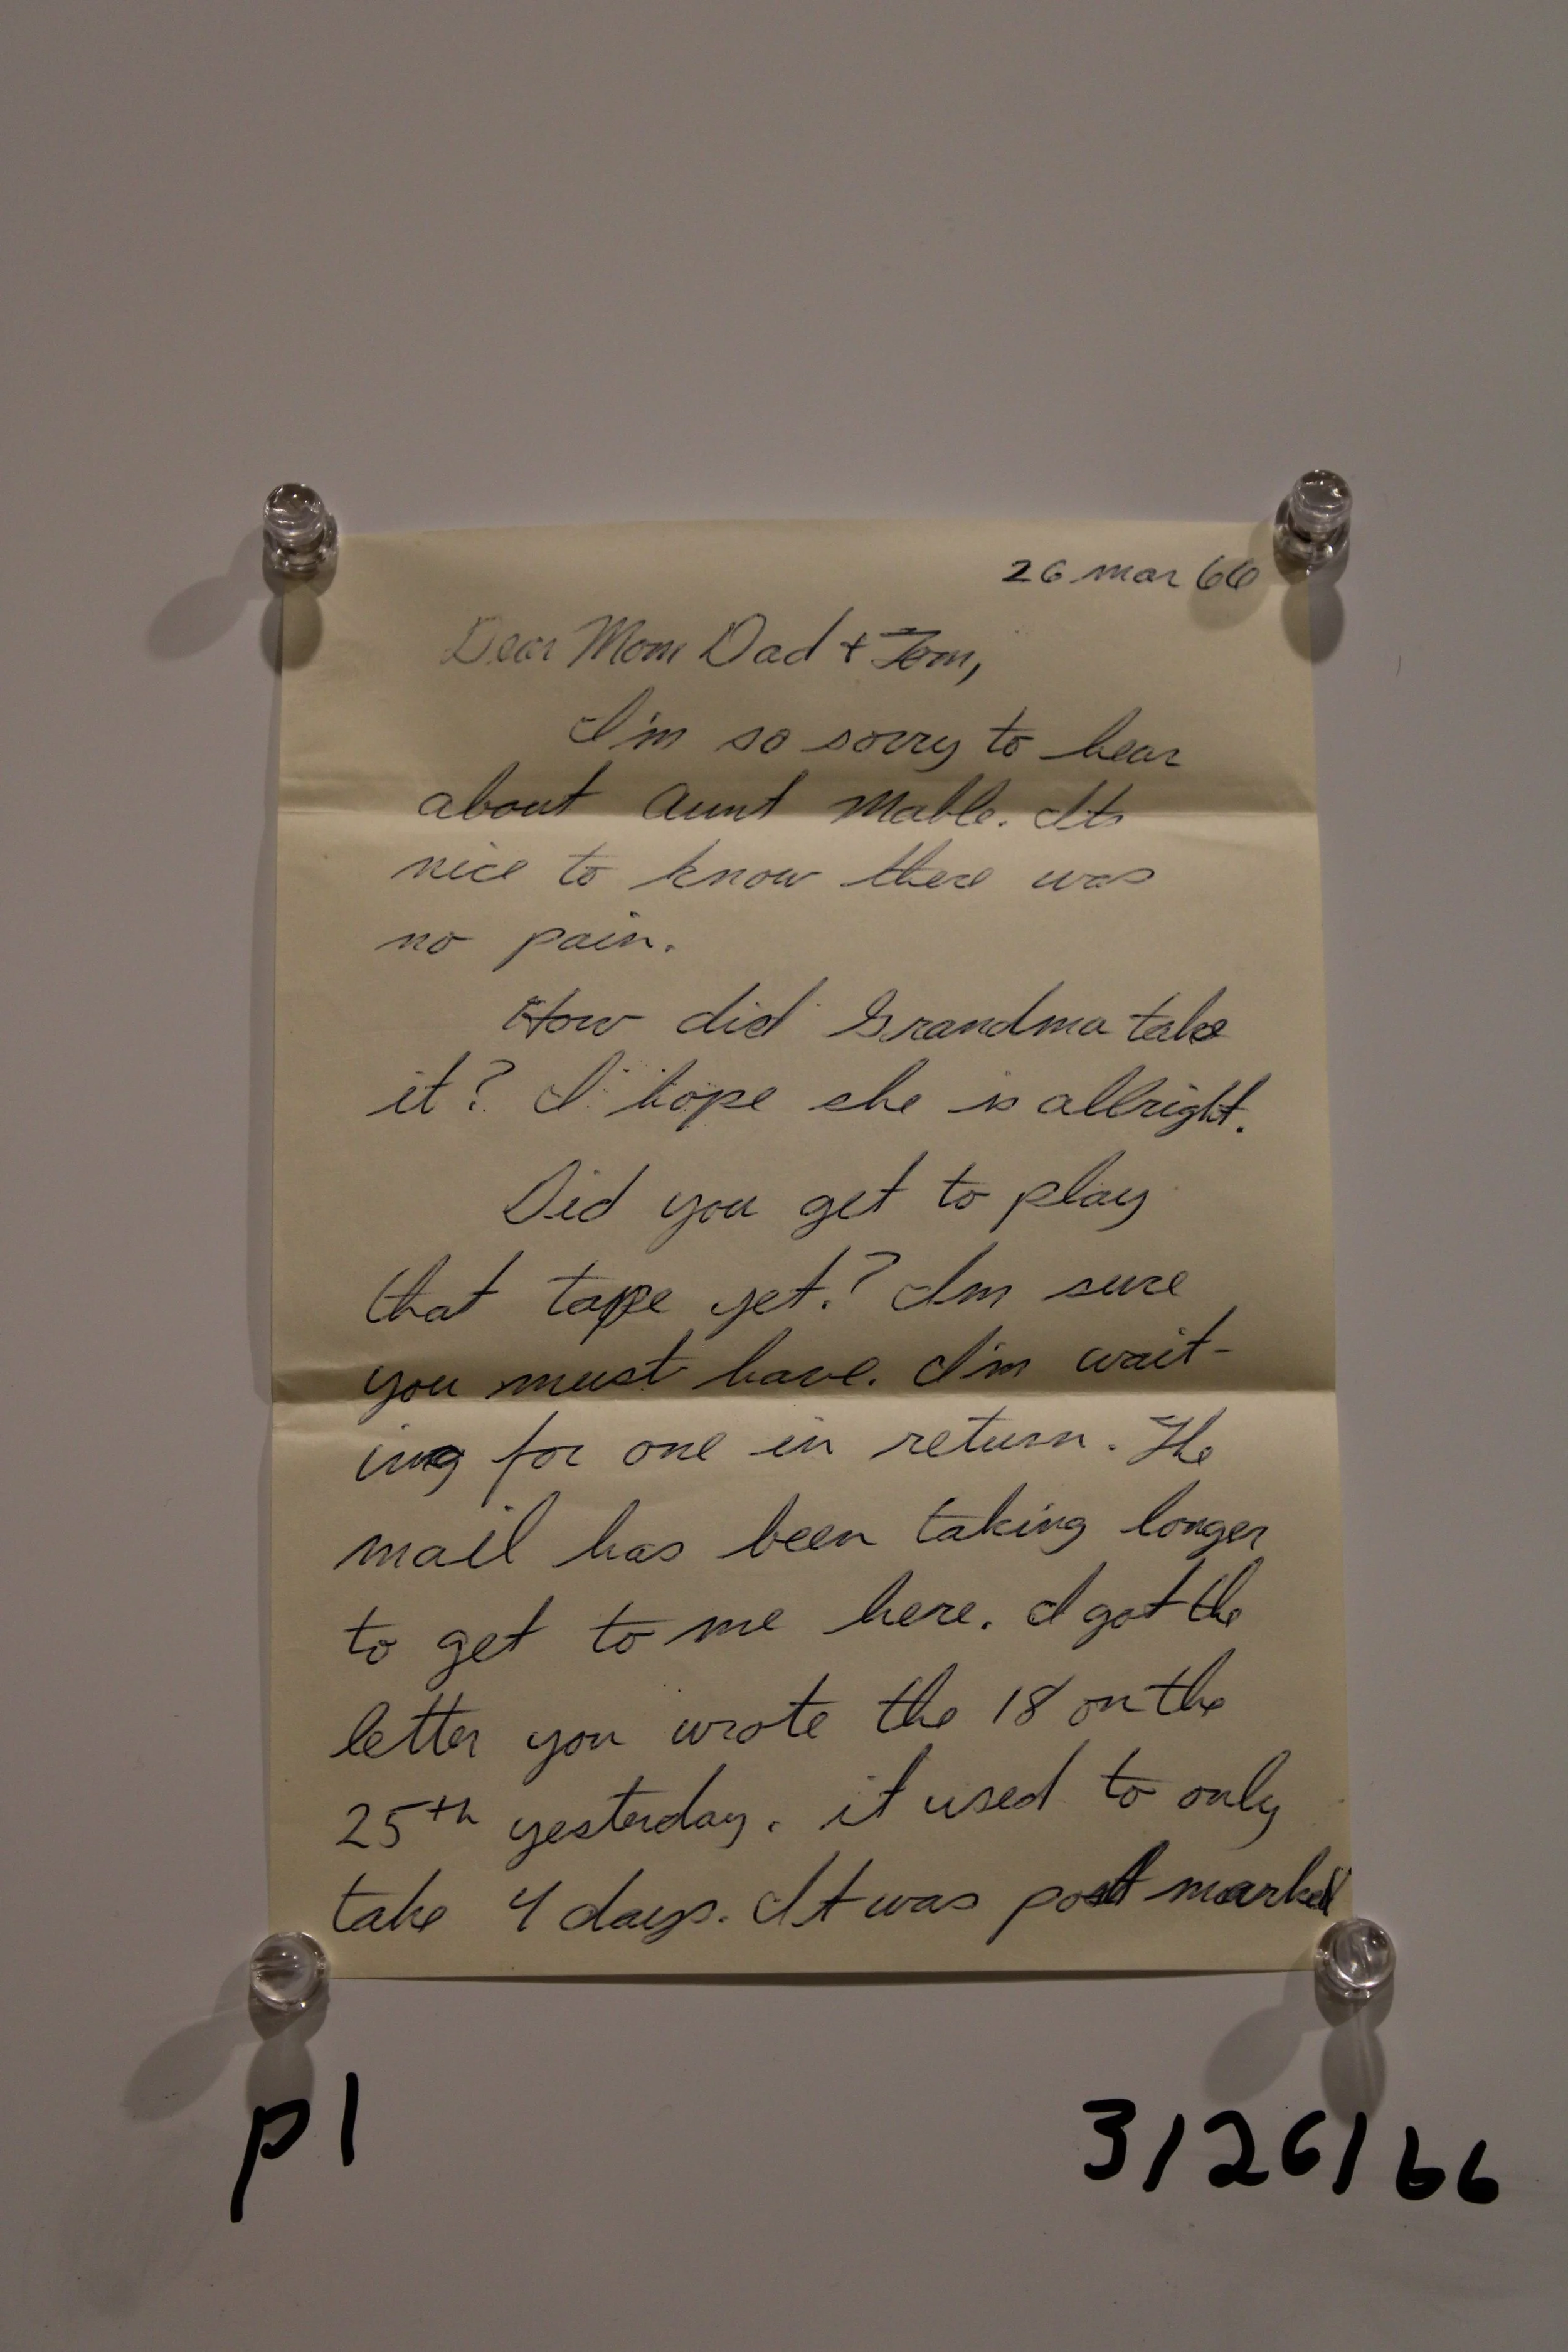 26 Mar 66
Dear Mom Dad + Tom,
I'm so sorry to hear
about Aunt Mable. Its
nice to know there was
no pain.
How did Grandma take
it? I hope she is allright.
Did you get to play
that tape yet? Im sure
you must have. I'm wait-
ing for one in return. The
mail has been taking longer
to get to me here. I got the
letter you wrote the 18 on the
25th yesterday. it used to only
take 4 days. It was post marked
p1
3/26/66